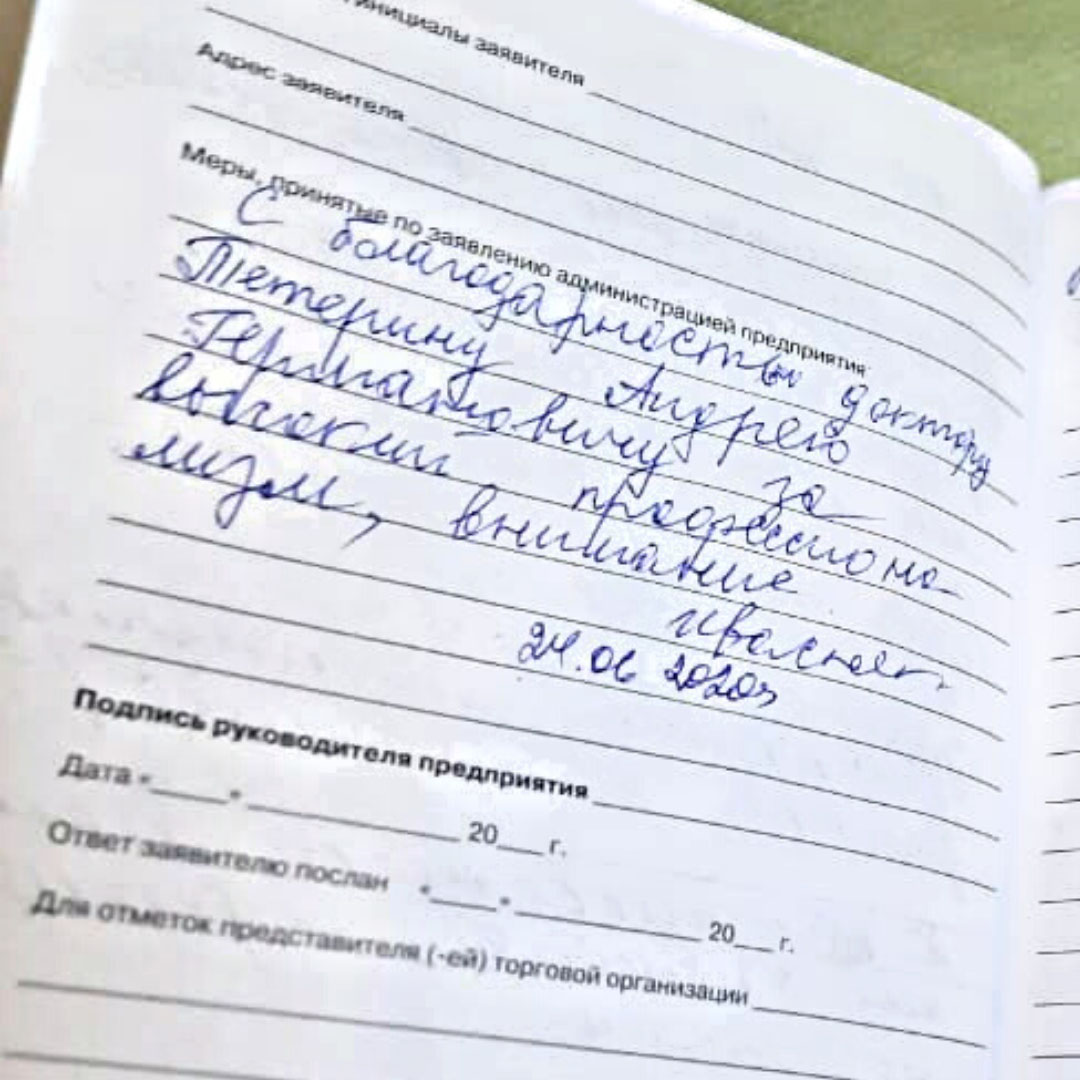 инициалы заявителя
Адрес заявителя
Меры, принятые по заявлению администрацией предприятия
С благодарностью доктору
Тетерину Андрею
Германовичу за
высокий профессиона-
лизм, внимание
24.06 2020г
Подпись руководителя предприятия
Дата "___" ___ 20___ г.
Ответ заявителю послан "___" ___ 20___ г.
Для отметок представителя (-ей) торговой организации